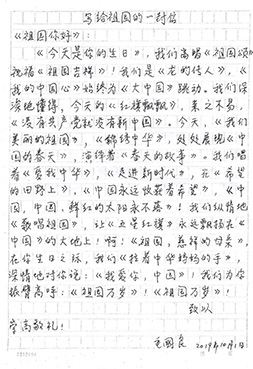 写给祖国的一封信
《祖国你好》:
《今天是你的生日》,我们高唱《祖国颂》
祝福《祖国吉祥》!我们是《龙的传人》,《我
的中国心》始终为《大中国》跳动。我们深
深地懂得,今天的《红旗飘飘》,来之不易,
《没有共产党就没有新中国》。今天,《我们
美丽的祖国》,《锦绣中华》,处处展现《中
国的春天》,演绎着《春天的故事》。我们唱
着《爱我中华》,《走进新时代》,在《希望
的田野上》,《中国永远收获着希望》,《中
国,中国,鲜红的太阳永不落》!我们纵情地
《歌唱祖国》,让《五星红旗》永远飘扬在《
中国》的大地上!啊!《祖国,慈祥的母亲》,
在你生日之际,我们《拉着中华妈妈的手》,
深情地对你说:《我爱你,中国》!我们为你
振臂高呼:《祖国万岁》!《祖国万岁》!
致以
崇高敬礼!
2019年10月1日